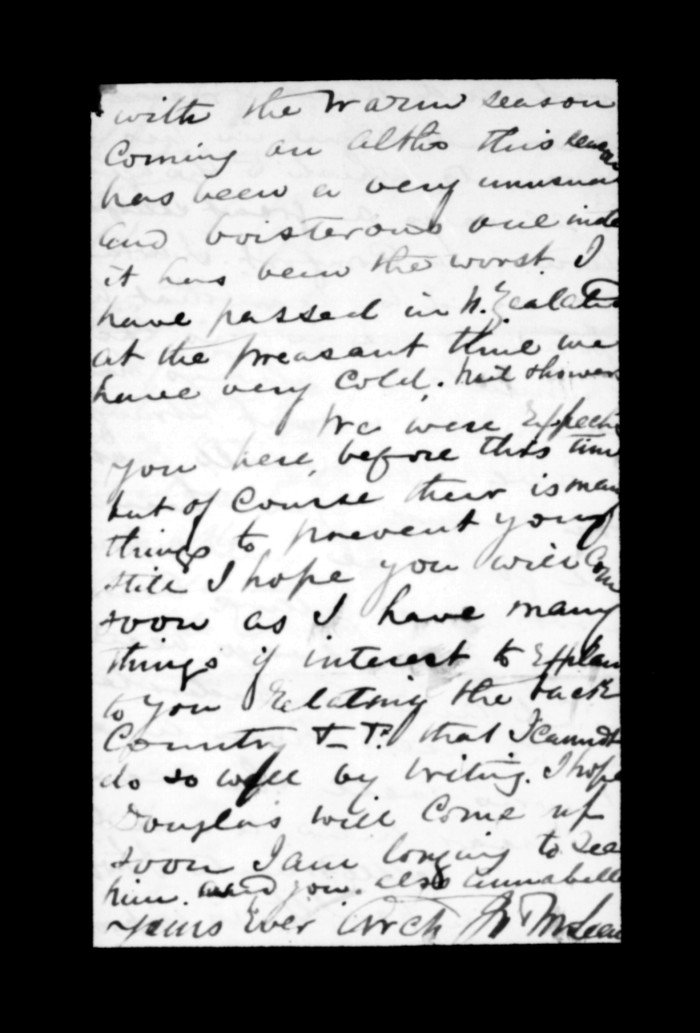 with the warm season
Coming on altho this season
has been a very unusual
and boisterous one inde
it has been the worst I
have passed in N. Zealand
at the preasant time we
have very Cold, wet showers
We were Expecti
you here, before this time
but of Course their is many
things to prevent you
still I hope you will Com
soon as I have many
things of interest to Explain
to you Relating the back
Country that I cannot
do so well by writing. I hope
Douglas will Come up
soon I am longing to see
him. and you. also Annabella
Yours Ever Arch Jn McLean